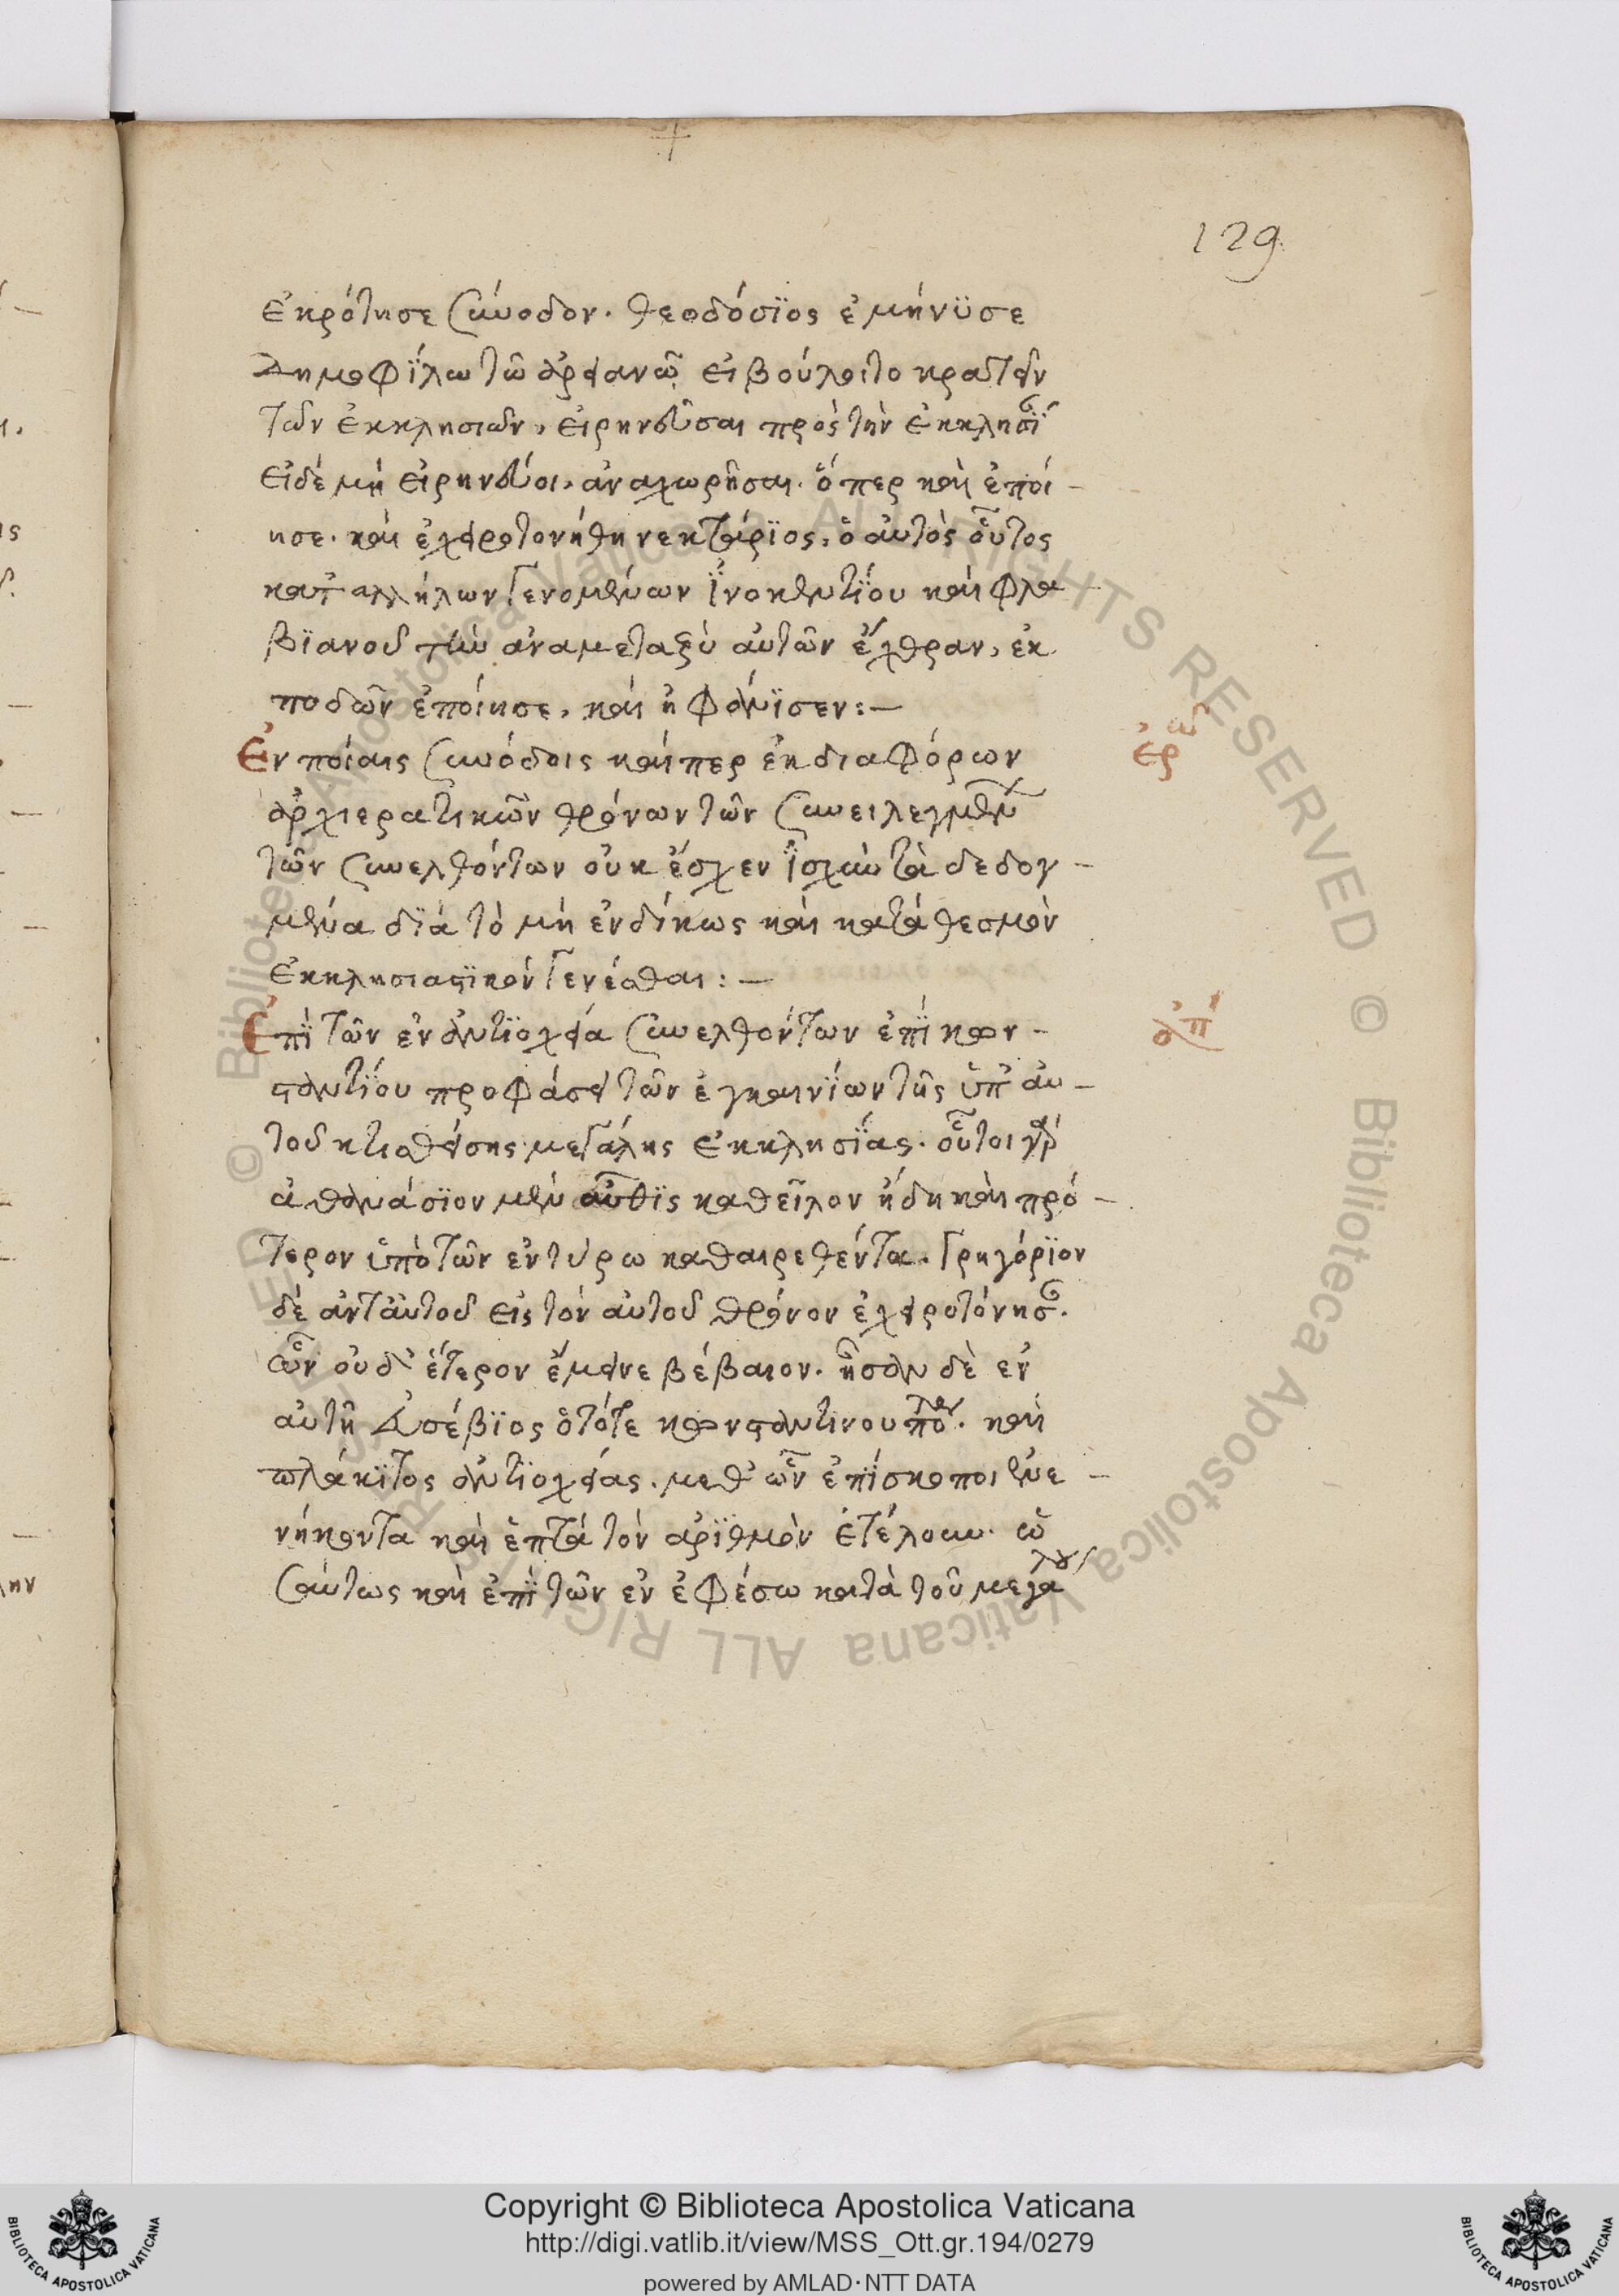 129
ἐκρότησε σύνοδον. θεοδόσϊος ἐμήνϋσε
Δημοφΐλω τῶ ἀρειανῶ, εἰ βούλοιτο κρατεῖν
τῶν ἐκκλησιῶν, εἰρηνεῦσαι πρὸς τὴν ἐκκλησΐ
εἰδὲ μὴ εἰρηνεύοι, ἀναχωρῆσαι. ὅπερ καὶ ἐποί-
ησε. καὶ ἐχειροτονήθη νεκτάρϊος, ὁ αὐτὸς οὗτος
κατ' αλλήλων γενομένων ϊνοκεντΐου καὶ φλα
βϊανοῦ τὴν ἀναμεταξὺ αὐτῶν ἔχθραν, ἐκ
ποδῶν ἐποίησε, καὶ ἠφάνϊσεν:—
Ἐν ποίαις συνόδοις καίπερ ἐκ διαφόρων
ἐρω
ἀρχιερατικῶν θρόνων τῶν συνειλεγμέν
τῶν συνελθόντων οὐκ ἔσχεν ϊσχὺν τὰ δεδογ-
μένα δϊὰ τὸ μὴ ἐνδίκως καὶ κατὰ θεσμὸν
ἐκκλησιαστϊκὸν γενέσθαι:—
Ἐπϊ τῶν ἐν ἀντϊοχεία συνελθόντων ἐπϊ κων-
ἀπ
σταντΐου προφάσει τῶν ἐγκαινΐων τῆς ὑπ' αὐ-
τοῦ κτισθείσης μεγάλης ἐκκλησΐας. οὗτοι γὰρ
ἀθανάσϊον μὲν αὖθϊς καθεῖλον ἤδη καὶ πρό-
τερον ὑπὸ τῶν ἐν τύρω καθαιρεθέντα. Γρηγόρϊον
δὲ ἀντ' αὐτοῦ εἰς τὸν αὐτοῦ θρόνον ἐχειροτόνησ.
ὧν οὐδ' ἕτερον ἔμεινε βέβαιον. ἦσαν δὲ ἐν
αὐτῆ εὐσέβϊος ὁ τότε κωνσταντινουπο. καὶ
πλάκϊτος ἀντϊοχείας. μεθ' ὧν ἐπΐσκοποι ἐνε-
νήκοντα καὶ ἑπτὰ τὸν ἀρϊθμὸν ἐτέλουν. ὡ
σαύτως καὶ ἐπϊ τῶν ἐν ἐφέσω κατὰ τοῦ μεγάλου
Copyright © Biblioteca Apostolica Vaticana
http://digi.vatlib.it/view/MSS_Ott.gr.194/0279
powered by AMLAD·NTT DATA